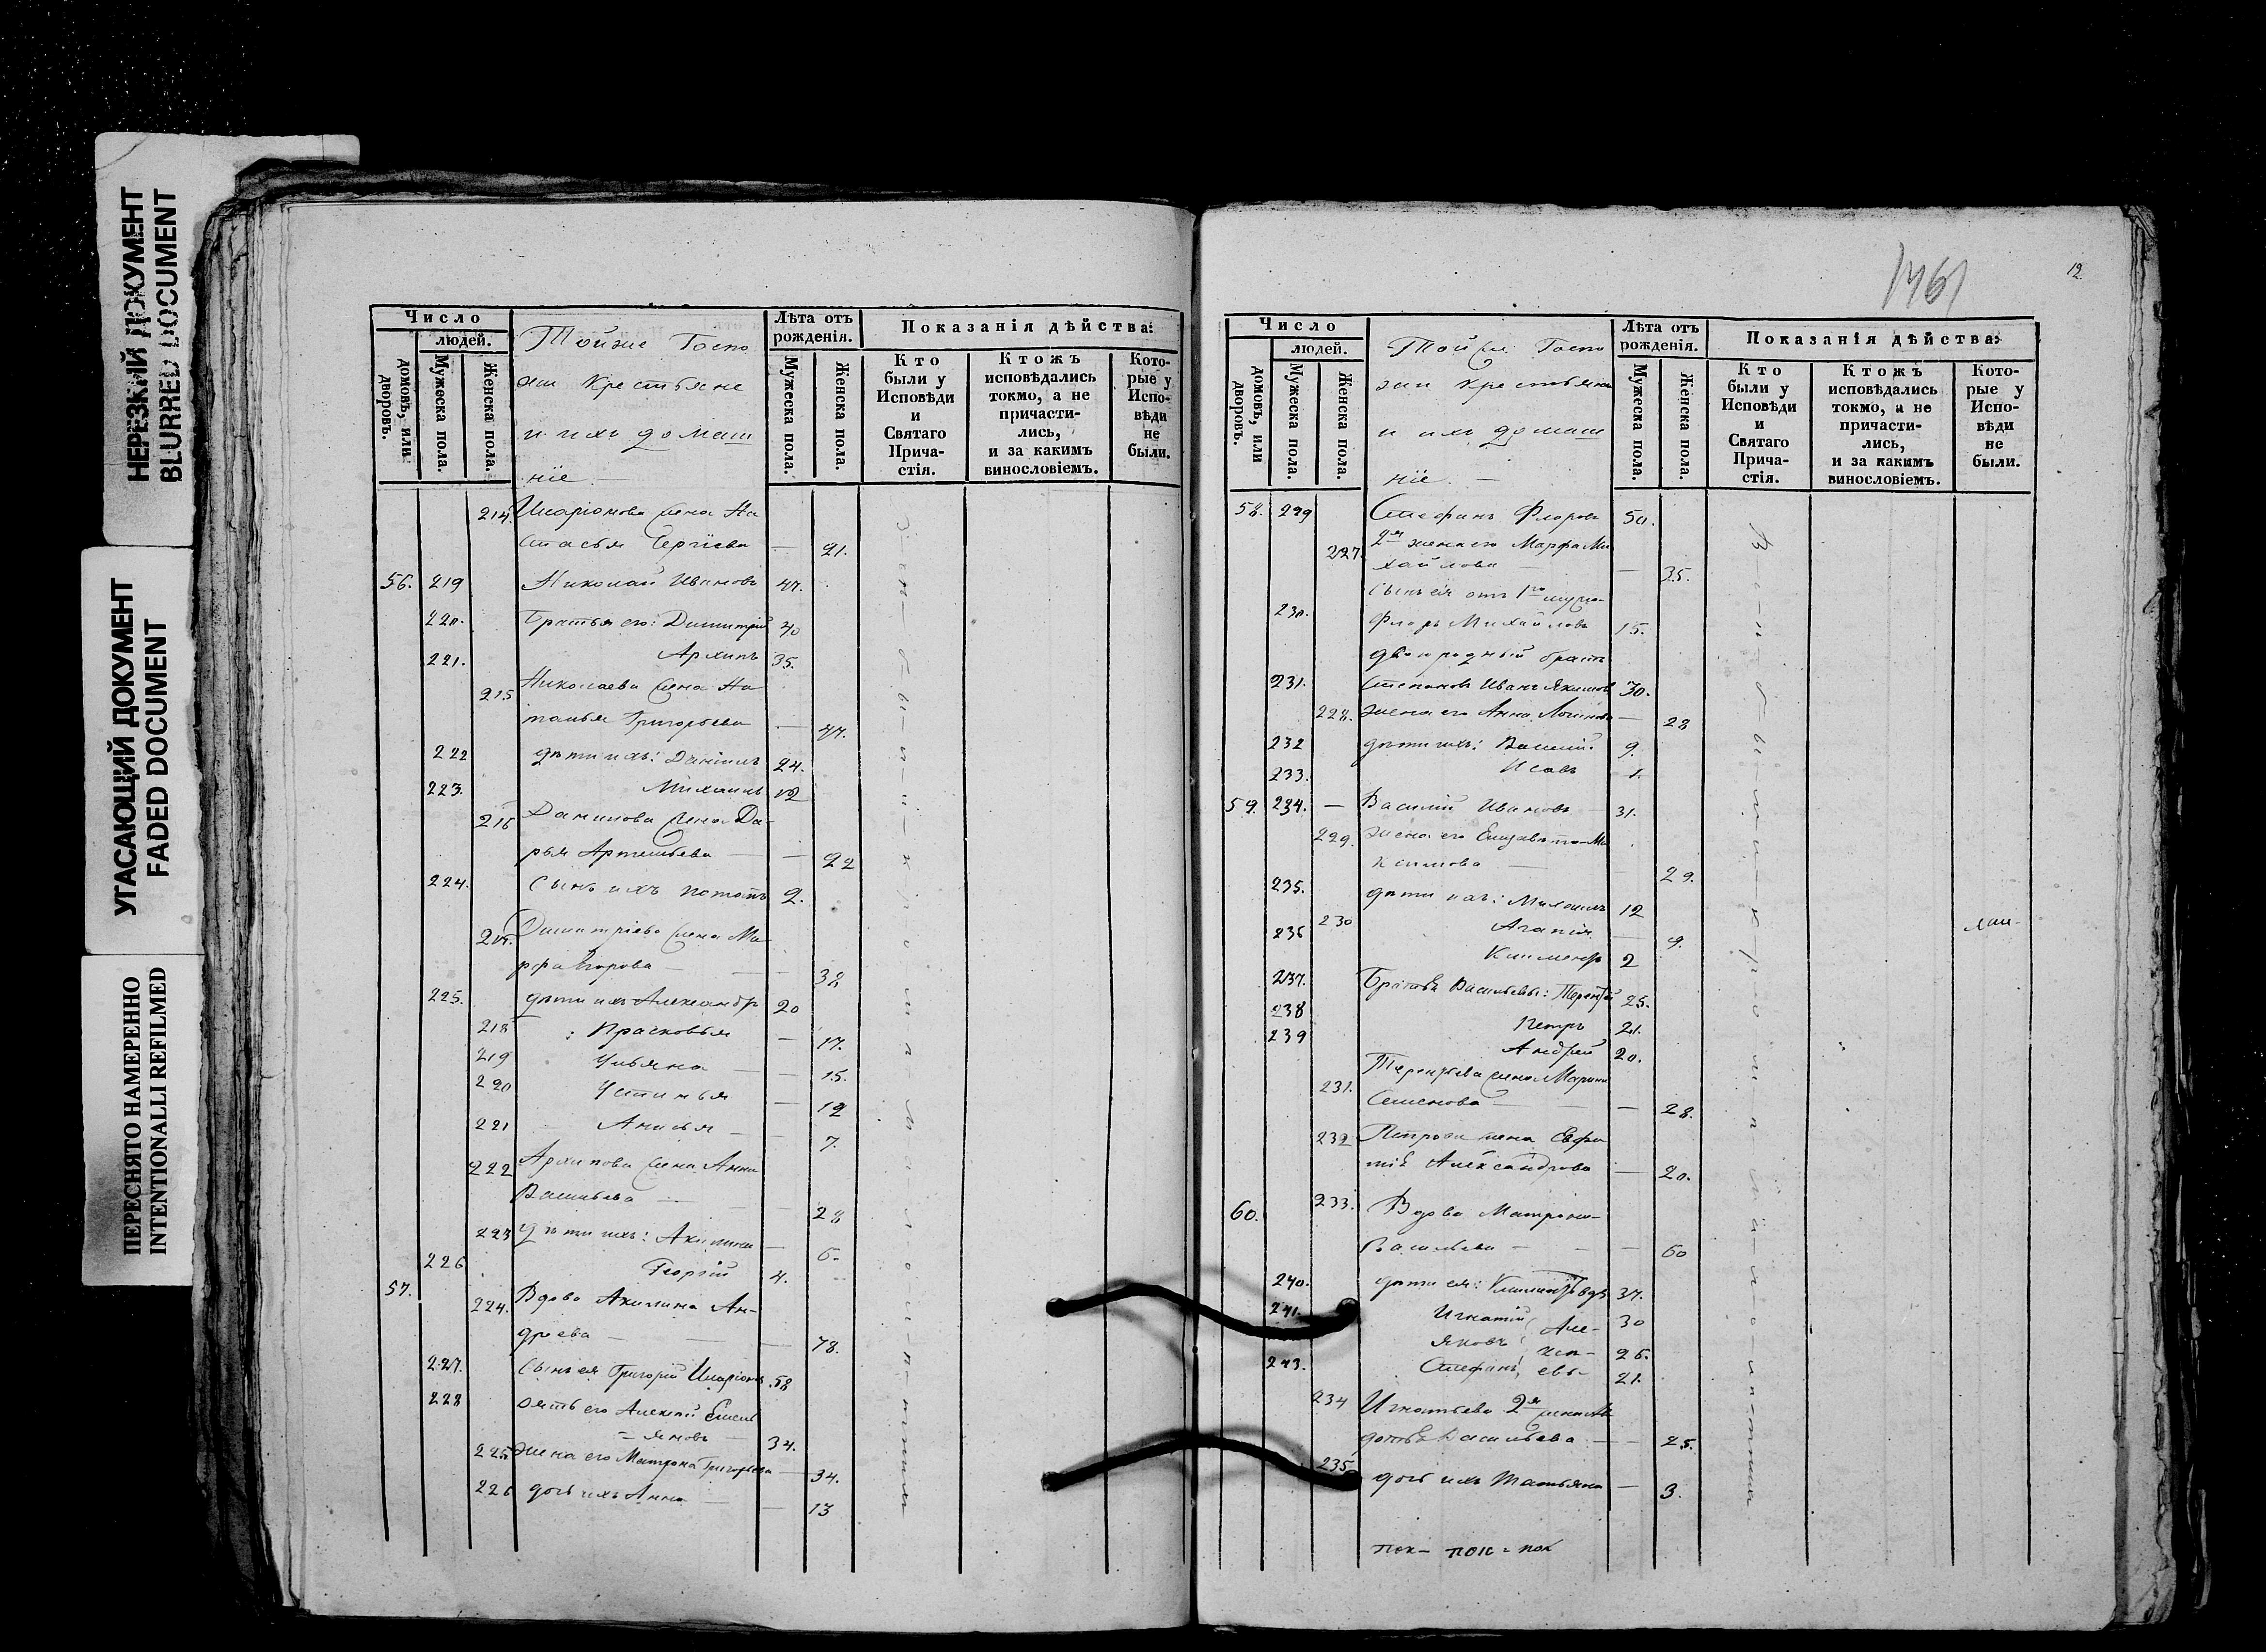 НЕРЕЗКИЙ ДОКУМЕНТ
BLURRED DOCUMENT
УГАСАЮЩИЙ ДОКУМЕНТ
FADED DOCUMENT
ПЕРЕСНЯТО НАМЕРЕННО
INTENTIONALLI REFILMED
Число
людей.
домовъ, или дворовъ.
Мужеска пола.
Женска пола.
Тойже Госпо
жи Крестьяне
и ихъ домаш
ніе. —
Лѣта отъ рожденія.
Мужеска пола.
Женска пола.
Показанія дѣйства:
Кто были у Исповѣди и Святаго Прича-стія.
Ктожъ исповѣдались токмо, а не причасти-лись, и за какимъ винословіемъ.
Кото-рые у Испо-вѣди не были.
214. Иларіонова жена На
стасья Сергіева — 21.
56. 219 Николай Ивановъ 47.
220. Братья его: Димитрій 40
221. Архипъ 35.
215 Николаева жена На
талья Григорьева — 47.
222 дѣти ихъ: Даніилъ 24.
223. Михаилъ 12
216 Данилова жена Да-
рья Артемьева — 22
224. Сынъ ихъ Потапъ 2.
217. Димитріева жена Ма
рфа Егорова — 38
225. дѣти ихъ Александръ 20
218 : Прасковья — 17.
219 Ульяна — 15.
220 Устинья — 12
221 Анисья — 7.
222 Архипова жена Анна
Васильева — 28
223 Дѣти ихъ: Акилина — 6.
226 Георгій 4.
57. 224. Вдова Акилина Ан-
дреева — 78.
227. Сынъ ея Григорій Иларіоновъ 58
228 зять его Алексѣй Емель
= яновъ — 34.
225 жена его Матрона Григорьева — 34.
226 дочь ихъ Анна — 13
1461
12
Число
людей.
домовъ, или дворовъ.
Мужеска пола.
Женска пола.
Тойже Госпо
жи крестьяне
и ихъ домаш
ніе. —
Лѣта отъ рожденія.
Мужеска пола.
Женска пола.
Показанія дѣйства:
Кто были у Исповѣди и Святаго Прича-стія.
Ктожъ исповѣдались токмо, а не причасти-лись, и за какимъ винословіемъ.
Кото-рые у Испо-вѣди не были.
58. 229 Стефанъ Флоровъ 50.
227. 2я жена его Марфа Ми
хайлова — 35.
Сынъ ея отъ 1го мужа
230. Флоръ Михайловъ 15.
двоюродный братъ
231. Степановъ Иванъ Якимовъ 30.
228. жена его Анна Логинова — 28
232 дѣти ихъ: Василій. 9.
233. Исавъ 1.
59. 234. — Василій Ивановъ 31.
229. жена его Елизавета Ма
ксимова — 29.
235. дѣти ихъ: Михаилъ 12
230 Агапія — 9.
236 Климентъ 2
237. Братья Васильевы: Терентій 25.
238 Петръ 21.
239 Андрей 20.
231. Терентьева жена Марина
Семенова — 28.
232 Петрова жена Евфи
мія Александрова — 20.
60. 233. Вдова Матрона
Васильева — 60
240. дѣти ея: 37.
241. Игнатій 30
Яковъ Але- 26.
243. Стефанъ, евы 21.
234 Игнатьева 2я жена Ав
дотья Васильева — 25.
235 дочь ихъ Татьяна — 3.